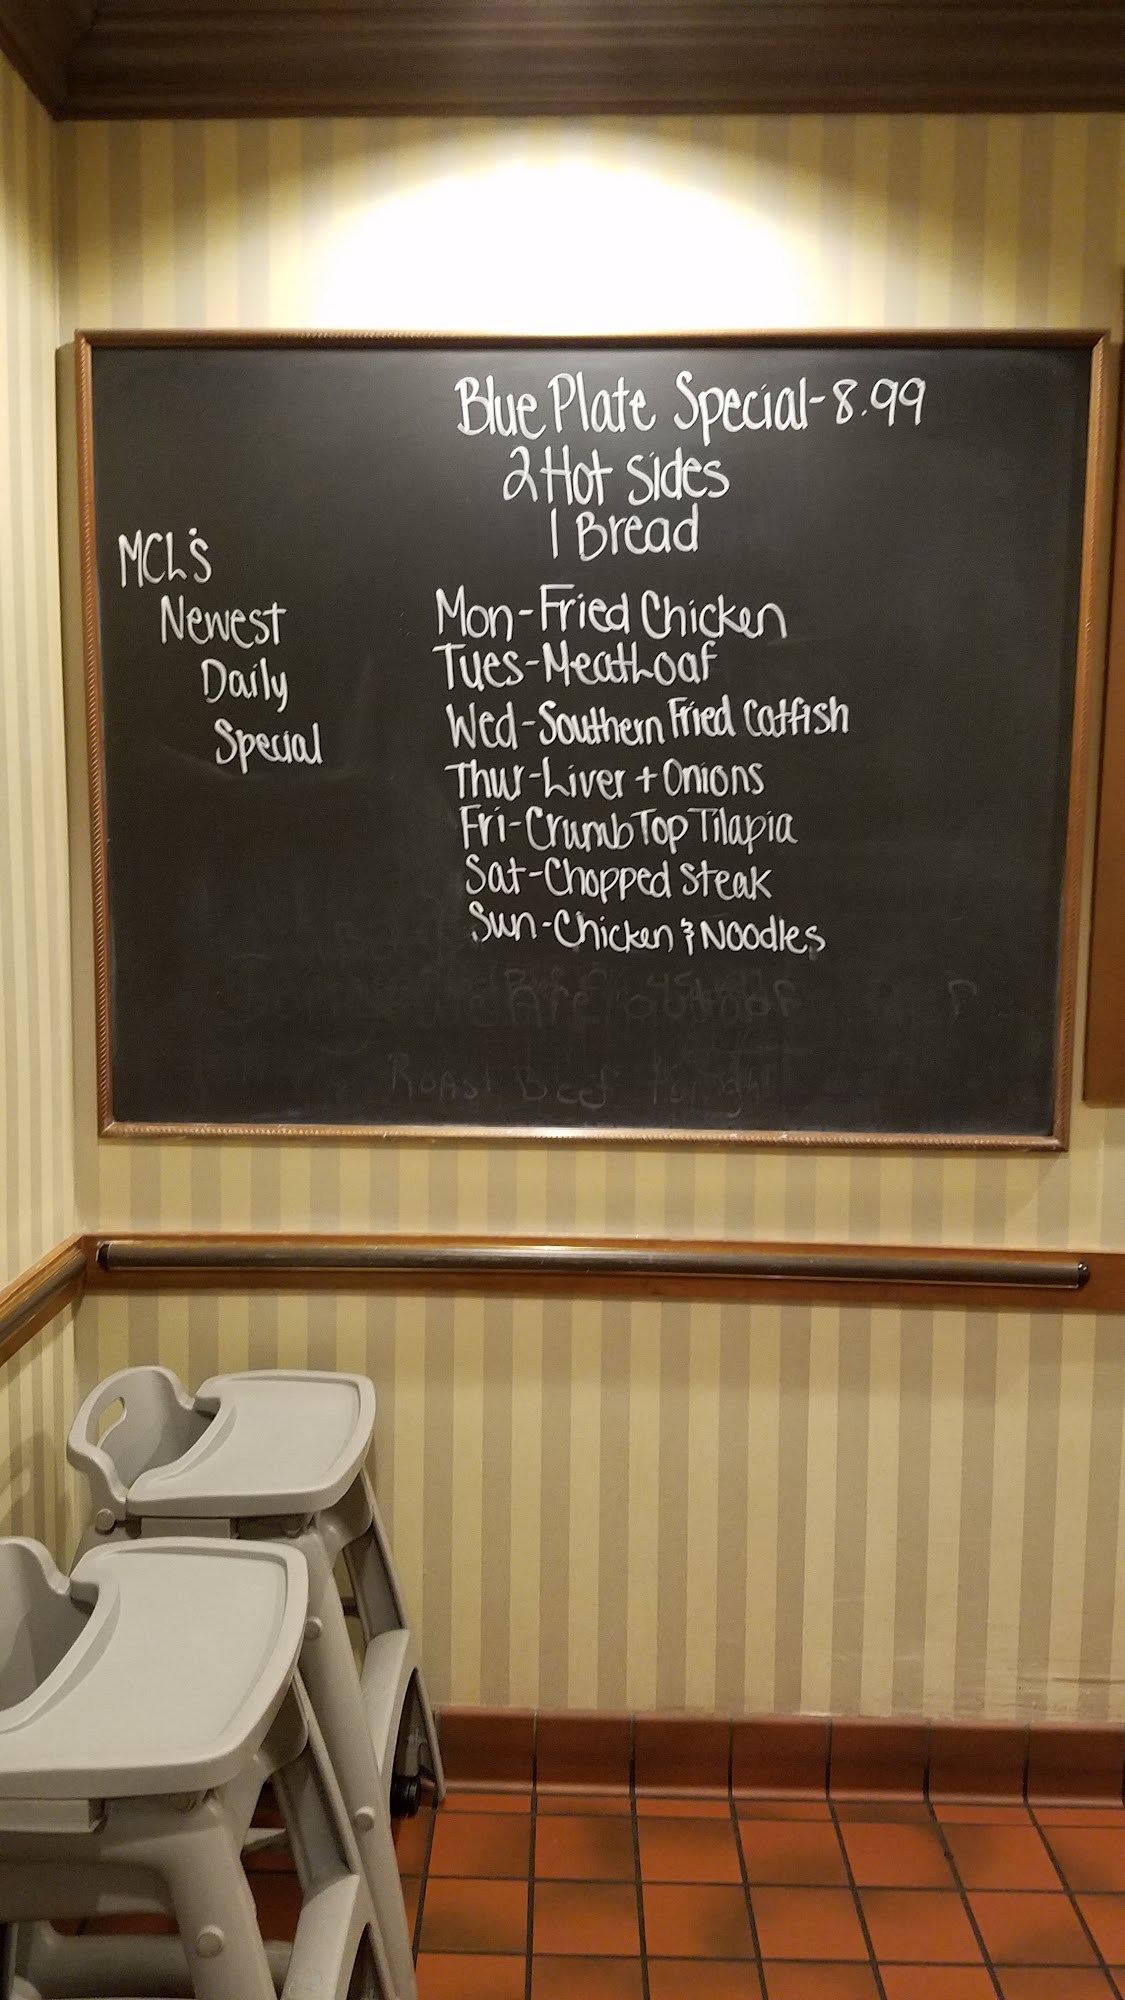 Blue Plate Special-8.99
2 Hot Sides
1 Bread
MCL's
Newest
Daily
Special
Mon-Fried Chicken
Tues-MeatLoaf
Wed-Southern Fried Catfish
Thur-Liver + Onions
Fri-Crumb Top Tilapia
Sat-Chopped Steak
Sun-Chicken & Noodles
Roast Beef